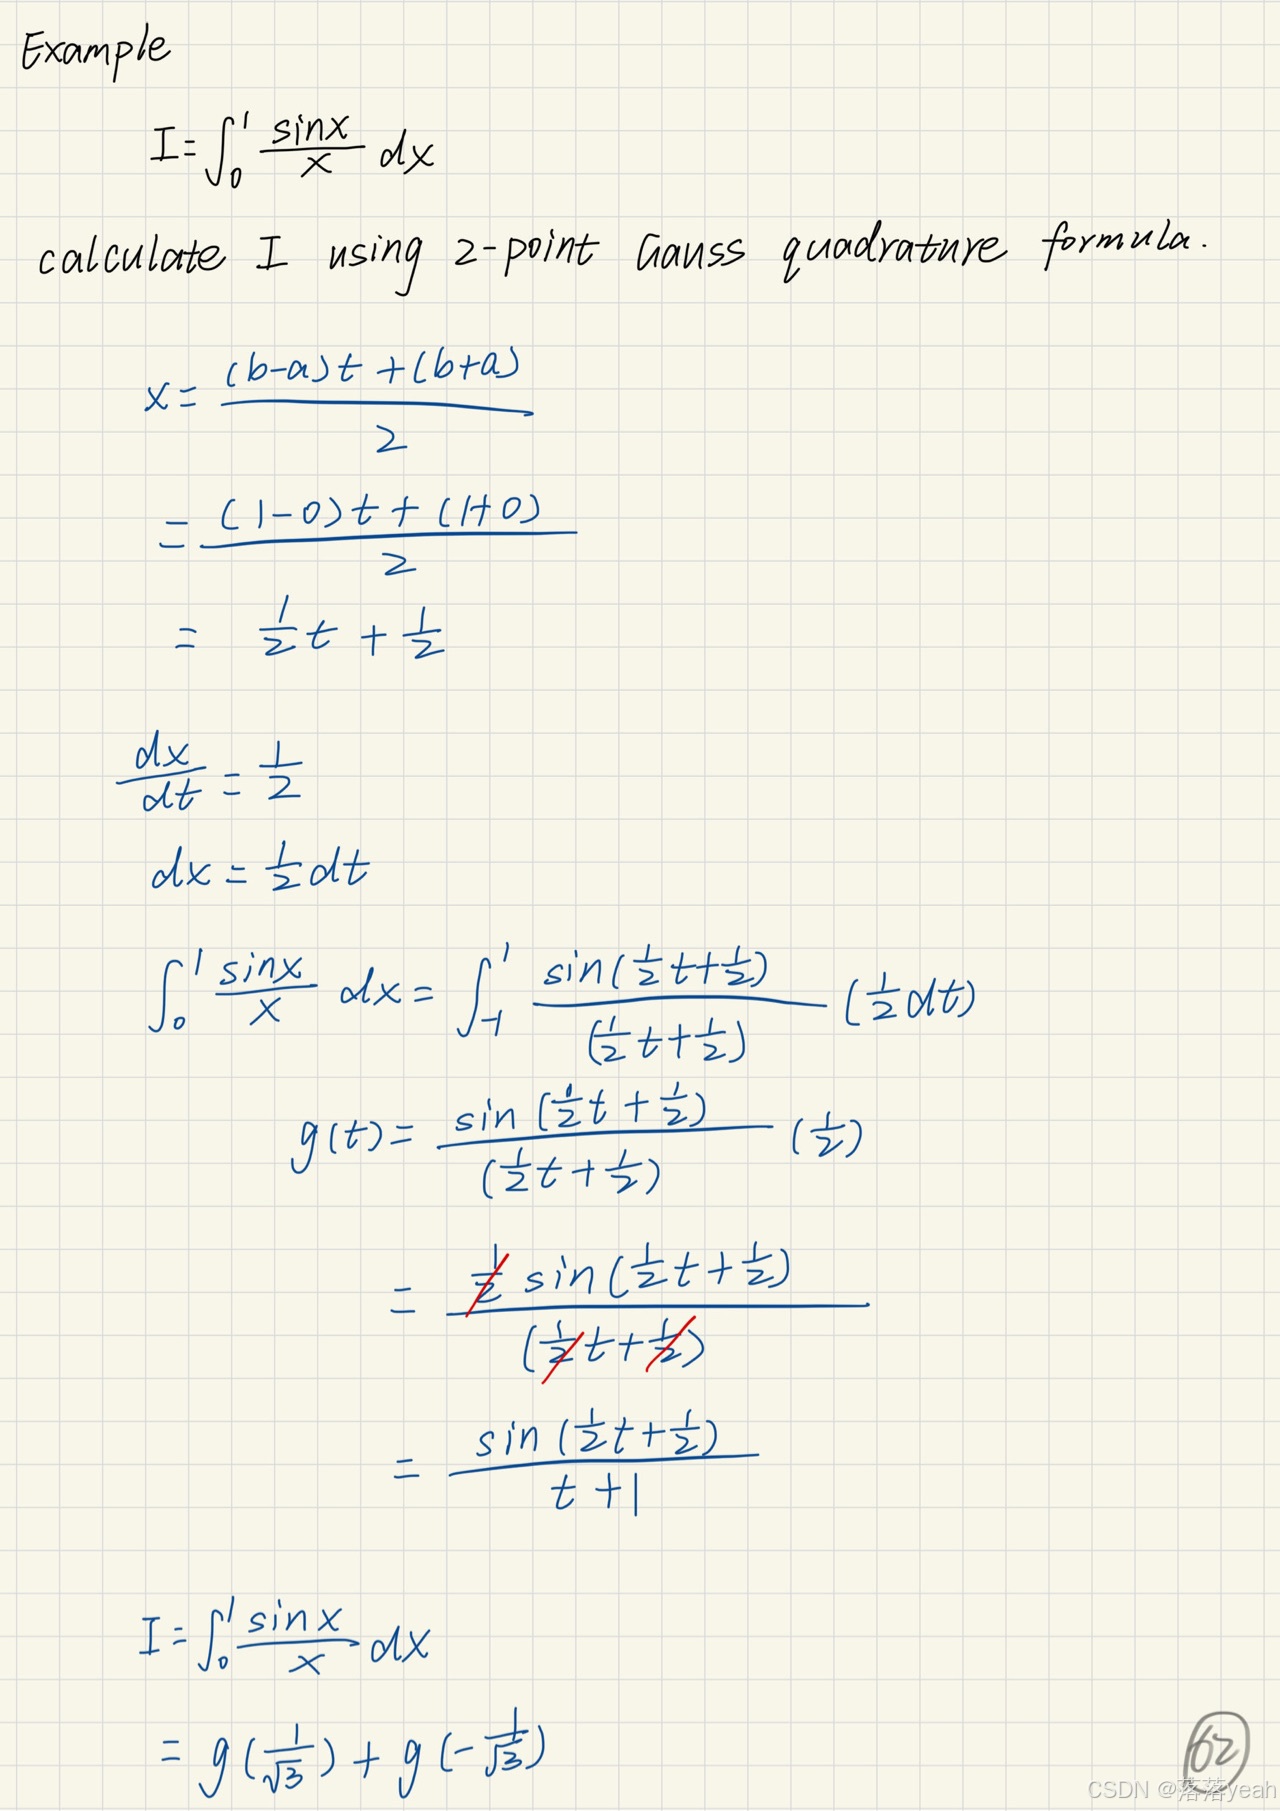 Example
I = ∫₀¹ sinx/x dx
calculate I using 2-point Gauss quadrature formula.
x = ((b-a)t + (b+a))/2
= ((1-0)t + (1+0))/2
= 1/2 t + 1/2
dx/dt = 1/2
dx = 1/2 dt
∫₀¹ sinx/x dx = ∫₋₁¹ sin(1/2 t + 1/2)/(1/2 t + 1/2) (1/2 dt)
g(t) = sin(1/2 t + 1/2)/(1/2 t + 1/2) (1/2)
= 1/2 sin(1/2 t + 1/2)/(1/2 t + 1/2)
= sin(1/2 t + 1/2)/(t + 1)
I = ∫₀¹ sinx/x dx
= g(1/√3) + g(-1/√3)
62
CSDN @落落yeah